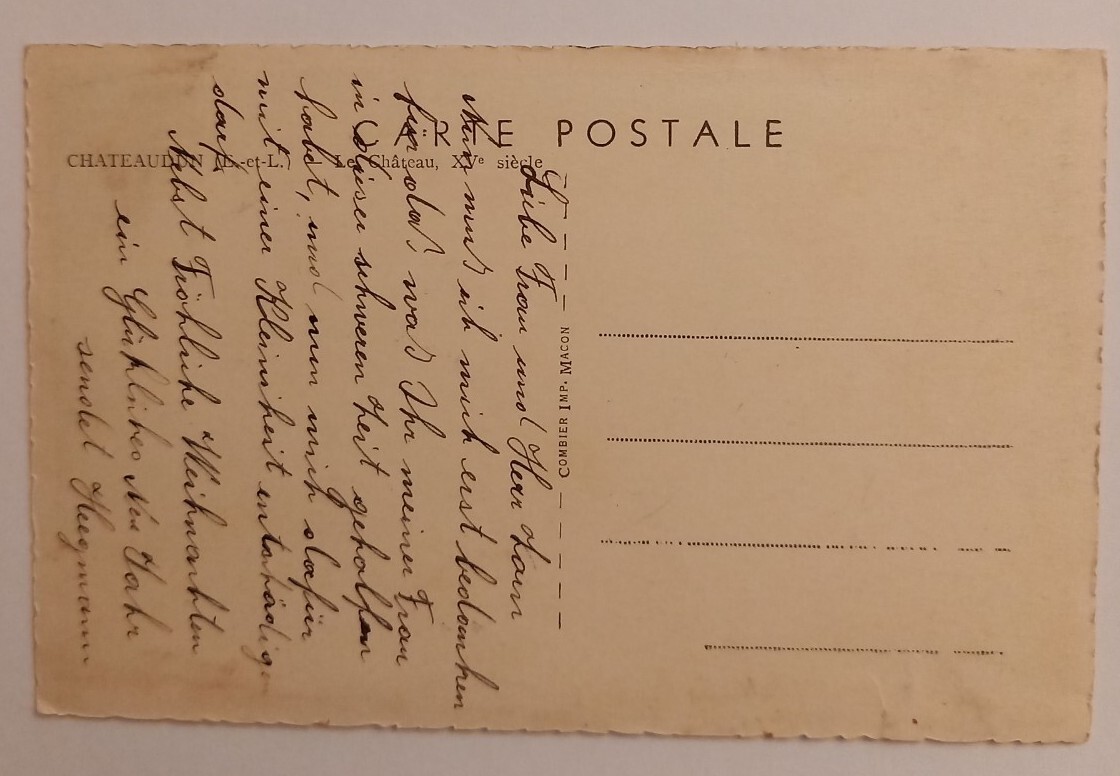 CARTE POSTALE
CHATEAUDUN (E.-et-L.) – Le Château, XVe siècle
COMBIER IMP. MACON
Liebe Frau und Herr
Nun mus ich mich erst bedanken
für das was Ihr meiner Frau
in dieser schweren Zeit geholfen
habt, und nun mich dafür
mit einer Kleinheit entschädigen
darf.
Nebst Fröhliche Weihnachten
ein Glückliches Neu Jahr
sendet Heegmann